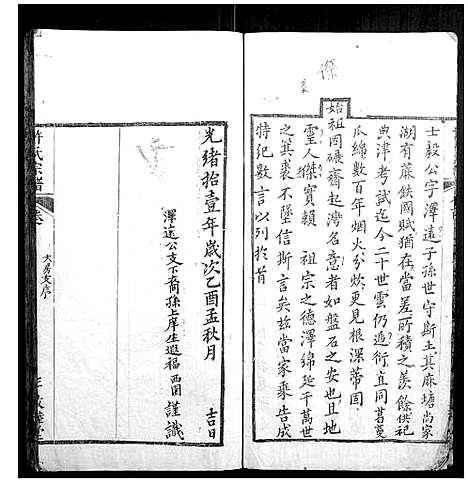 傑
士毅公字澤遠子孫世守斯土其麻塘尚家
湖有蔴鉄國賦猶在當差所積之羨餘供祀
典津考試迄今二十世雲仍逈衍直同葛蔓
瓜綿數百年烟火分炊更見根深蒂固
始祖因碾齋起灣名意者如盤石之安也且
靈人傑實賴 祖宗之德澤綿延千萬世
之箕裘不墜信斯言矣茲當家乘告成
特紀數言以列於首
光緒拾壹年歲次乙酉孟秋月 吉日
澤遠公支下裔孫上庠生遐福 西園 謹識
許氏宗譜
大房支序